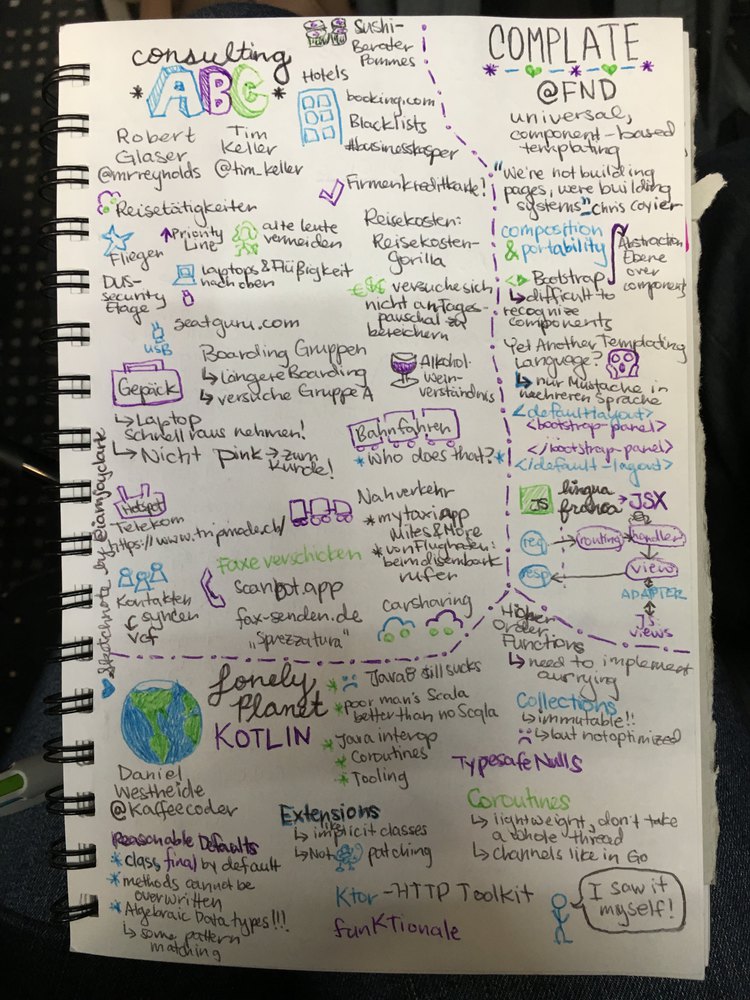 consulting
ABC
Robert
Glaser
@mrreynolds
Tim
Keller
@tim_keller
Sushi-
Berater
Pommes
Hotels
booking.com
Blacklists
#businesskasper
Firmenkreditkarte!
Reisetätigkeiten
Fliegen
Priority
Line
alte leute
vermeiden
DUS-
security
Etage
Laptops & Flüßigkeit
nach oben
USB
seatguru.com
Reisekosten:
Reisekosten-
gorilla
€
versuche sich
nicht an Tages-
pauschal zu
bereichern
Gepäck
Boarding Gruppen
↳ längere Boarding
↳ versuche Gruppe A
↳ Laptop
schnell raus nehmen!
↳ Nicht pink → zum
Kunde!
Alkohol-
wein-
verständnis
Bahnfahren
*Who does that?*
Hotspot
Telekom
https://www.tripmode.ch/
Nahverkehr
*mytaxi app
Miles & More
*von Flughafen:
beim disembark
rufen
Kontakten
syncen
vcf
Faxe verschicken
scanbot.app
fax-senden.de
„Sprezzatura"
carsharing
Sketchnote by @iamjoyclark
COMPLATE
@FND
universal,
component-based
templating
"We're not building
pages, we're building
systems" - Chris Coyier
composition
& portability
Abstraction
Ebene
over
component
<> Bootstrap
↳ difficult to
recognize
components
Yet Another Templating
Language?
↳ nur Mustache in
mehreren Sprache
<default-layout>
<bootstrap-panel>
</bootstrap-panel>
</default-layout>
JS
lingua
franca
→ JSX
req
routing
handler
resp
views
ADAPTER
JS
views
Lonely
Planet
KOTLIN
Daniel
Westheide
@Kaffeecoder
* Java 8 still sucks
* poor man's Scala
better than no Scala
* Java interop
* Coroutines
* Tooling
Reasonable Defaults
* class, final by default
* methods cannot be
overwritten
* Algebraic Data types!!!
↳ some pattern
matching
Extensions
↳ like implicit classes
↳ Not patching
Higher
Order
Functions
↳ need to implement
currying
Collections
↳ immutable!!
↳ but not optimized
Typesafe Nulls
Coroutines
↳ lightweight, don't take
a whole thread
↳ channels like in Go
Ktor - HTTP Toolkit
funKTionale
I saw it
myself!